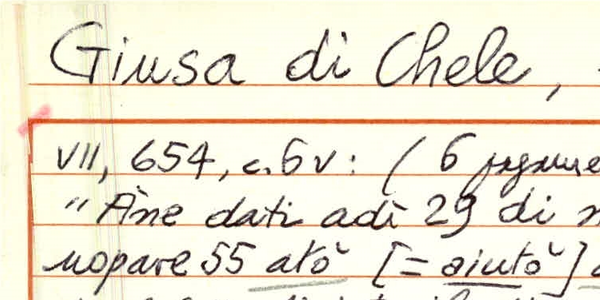 Giusa di Chele,
VII, 654, c. 6v: ( 6
"Àne dati adì 29 di
uopare 55 atò [= aiutò]